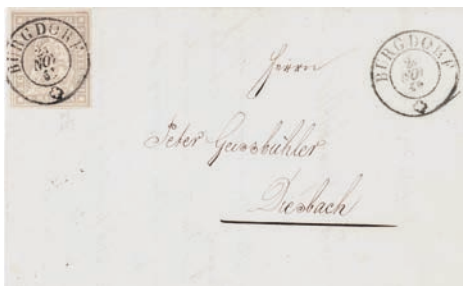 BURGDORF
NOV
BURGDORF
NOV
Herrn
Peter Geissbühler
Diesbach